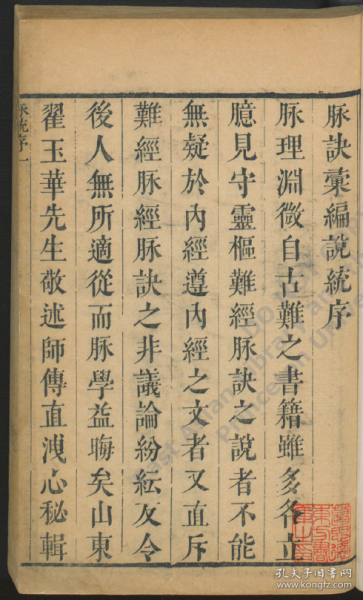 脉訣彚編說統序
脉理淵微自古難之書籍雖多各立
臆見守靈樞難經脉訣之說者不能
無疑於內經遵內經之文者又直斥
難經脉經脉訣之非議論紛紜反令
後人無所適從而脉學益晦矣山東
翟玉華先生敬述師傳直洩心秘輯
脉統序 一
孔夫子旧书网